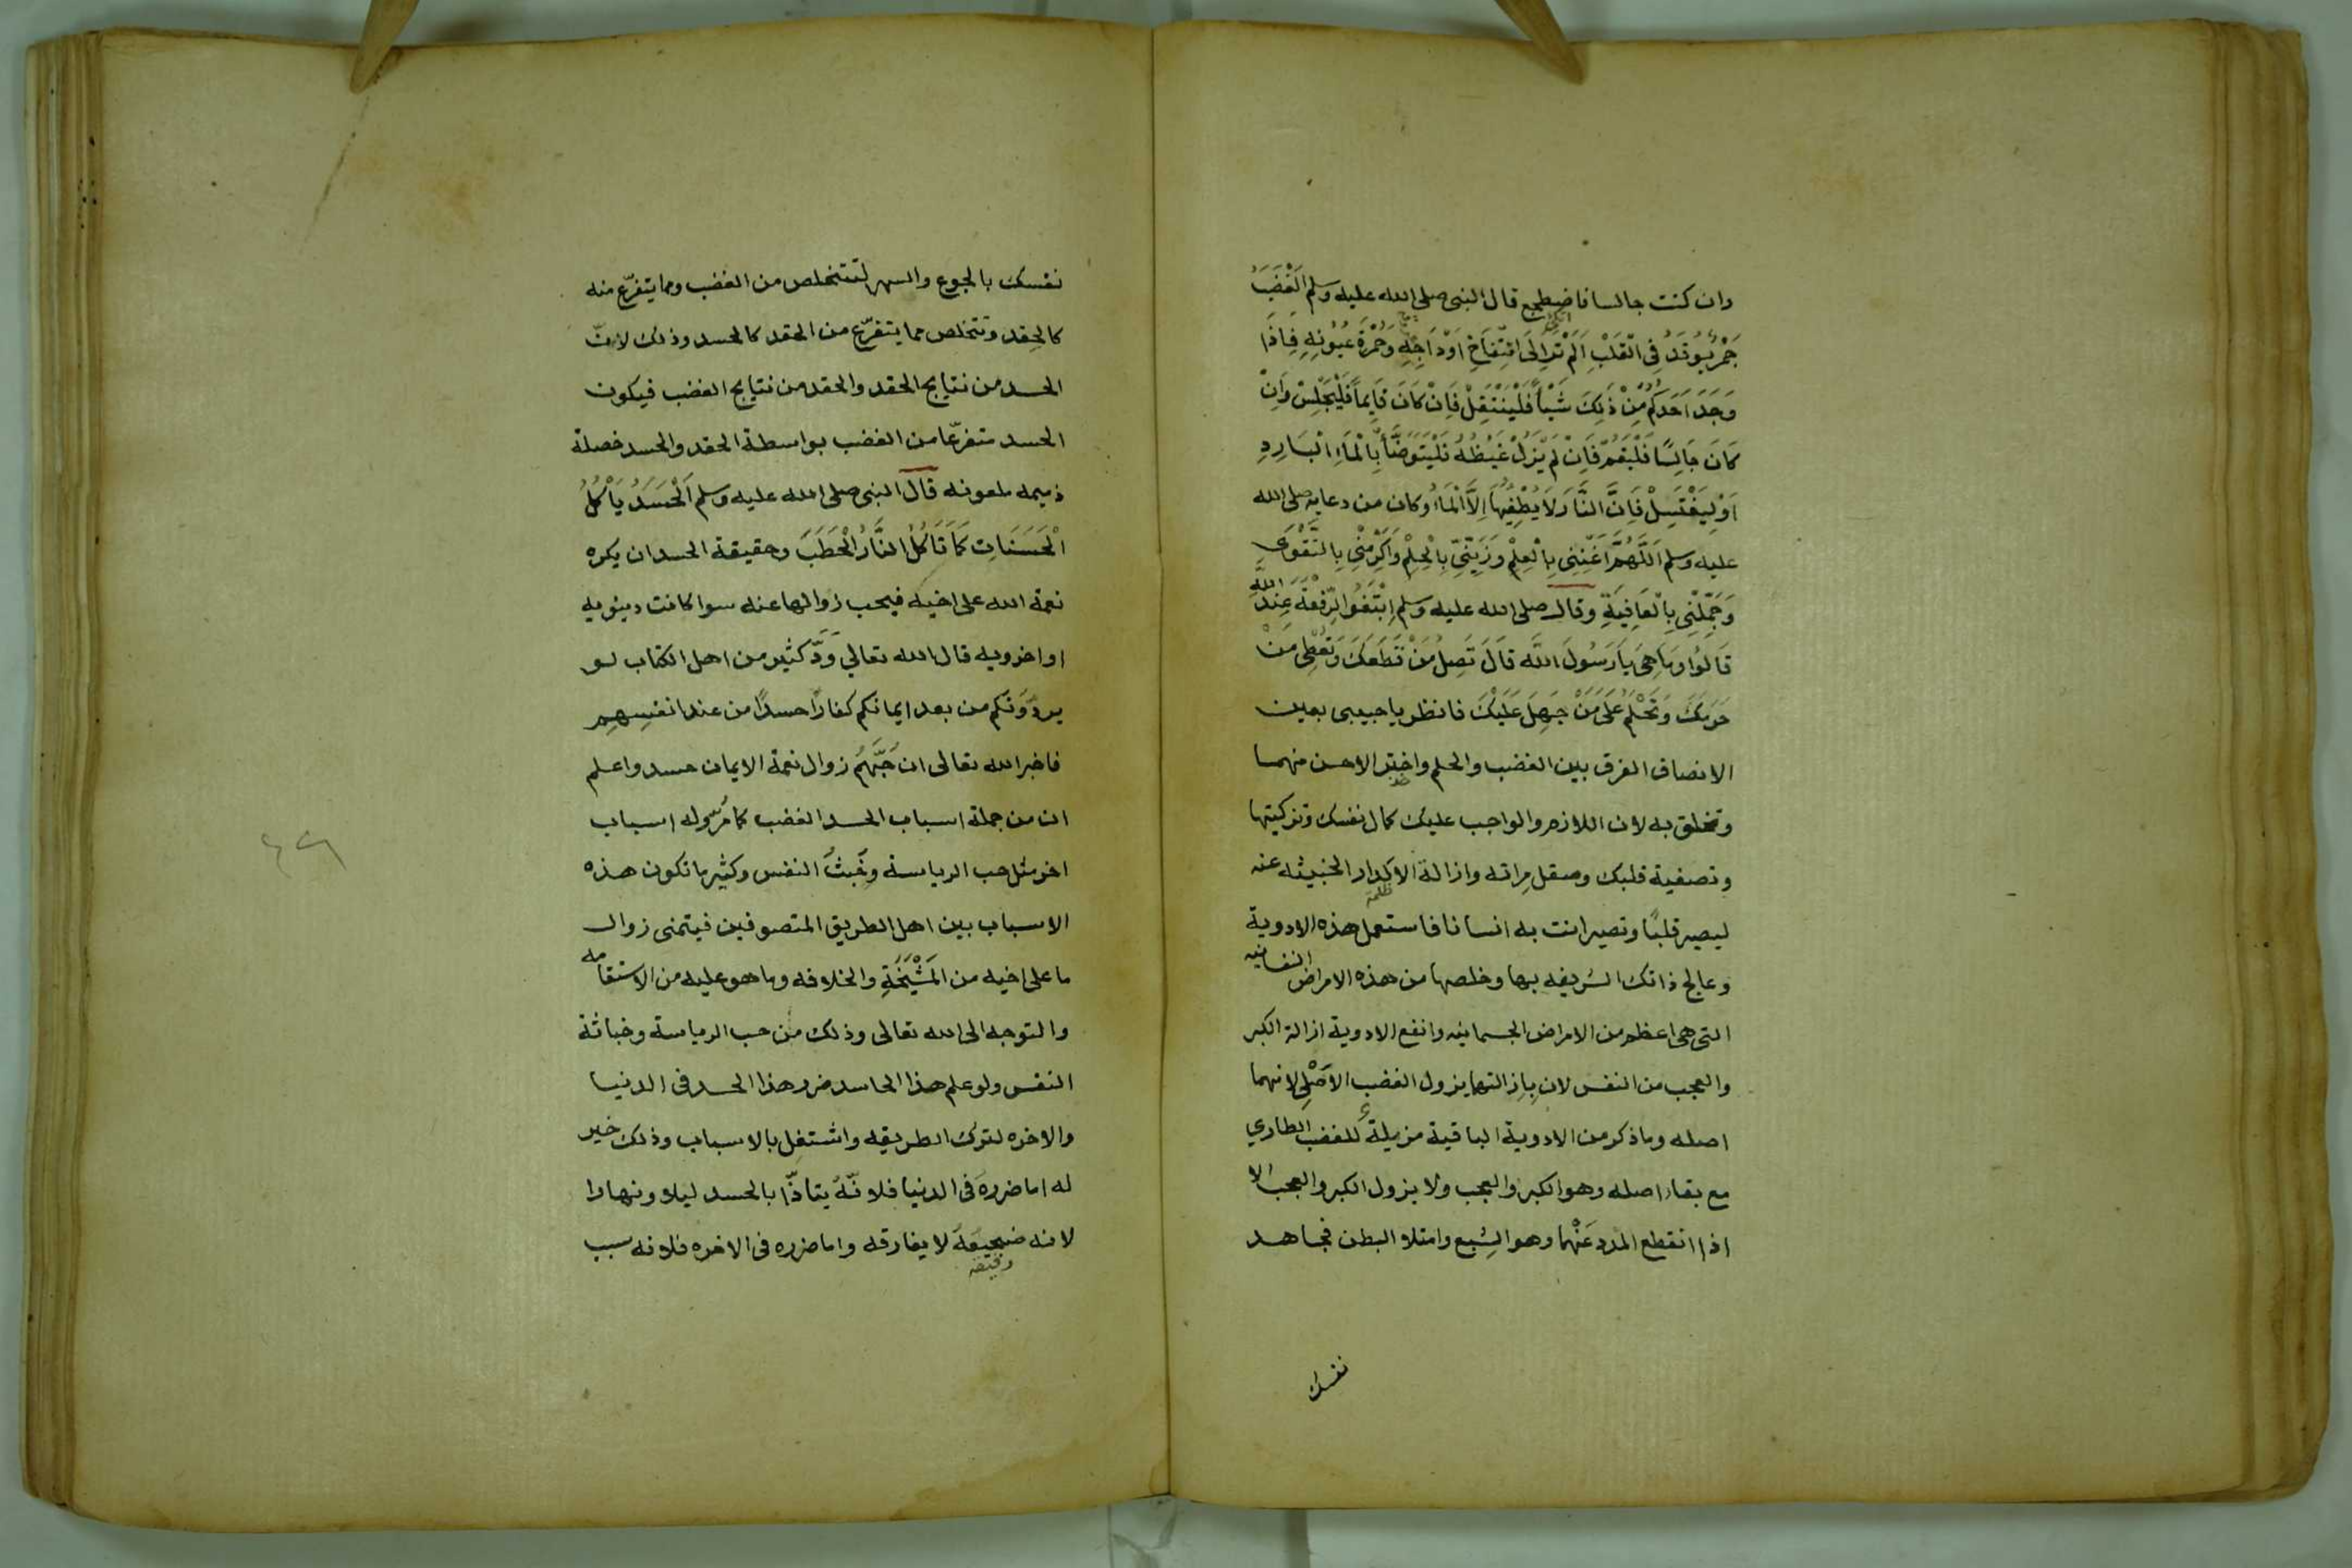 وان كنت جالسا فاضطجع قال النبى صلى الله عليه وسلم اَلْغَضَبُ
جَمْرٌ يُوقَدُ فِى الْقَلْبِ اَلَمْ تَرَ اِلَى انْتِفَاخِ اَوْدَاجِهِ وَحُمْرَةِ عُيُونِهِ فَاِذَا
وَجَدَ اَحَدُكُمْ مِنْ ذَلِكَ شَيْاً فَلْيَنْتَقِلْ فَاِنْ كَانَ قَايِماً فَلْيَجْلِسْ وَاِنْ
كَانَ جَالِسًا فَلْيَقُمْ فَاِنْ لَمْ يَزَلْ غَيْظُهُ فَلْيَتَوَضَّأْ بِالْمَاءِ الْبَارِدِ
اَوْ لِيَغْتَسِلْ فَاِنَّ النَّارَ لَا يُطْفِيُهَا اِلَّا الْمَاءُ وكان من دعايه صلى الله
عليه وسلم اَللَّهُمَّ اَغْنِنِى بِالْعِلْمِ وَزَيِّنِّى بِالْحِلْمِ وَاَكْرِمْنِى بِالتَّقْوَى
وَجَمِّلْنِى بِالْعَافِيَةِ وقال صلى الله عليه وسلم اِبْتَغُوا الرِّفْعَةَ عِنْدَ اللّٰهِ
قَالُوا وَمَا هِىَ يَا رَسُولَ اللَّه قَالَ تَصِلُ مَنْ قَطَعَكَ وَتُعْطِى مَنْ
حَرَمَكَ وَتَحْلُمُ عَلَى مَنْ جَهِلَ عَلَيْكَ فانظر يا حبيبى بعين
الانصاف الفرق بين الغضب والحلم واختر الاحسن منهما
وتخلق به لان اللازم والواجب عليك كمال نفسك وتزكيتها
وتصفية قلبك وصقل مراته وازالة الاكدار الخبيثه عنه
ليصير قلبًا وتصير انت به انسانا فاستعمل هذه الادوية
وعالج ذاتك الشريفه بها وخلصها من هذه الامراض النفسانيه
التى هى اعظم من الامراض الجسمانيه وانفع الادوية ازالة الكبر
والعجب من النفس لان بازالتهما يزول الغضب الاَصْلِى لانهما
اصله وما ذكر من الادوية الباقية مزيلة للغضب الطاري
مع بقاء اصله وهو الكبر والعجب ولا يزول الكبر والعجب الا
اذا انقطع المدد عَنْهُما وهو الشبع وامتلاء البطن فجاهد
نفسك
نفسك بالجوع والسهر لتتخلص من الغضب وما يتفرّع منه
كالحِقد وتتخلص مما يتفرّع من الحقد كالحسد وذلك لانّ
الحسد من نتايج الحقد والحقد من نتايج الغضب فيكون
الحسد متفرعّا من الغضب بواسطة الحقد والحسد خصلة
ذميمه ملعونه قال النبى صلى الله عليه وسلم اَلْحَسَدُ يَاْكُلُ
الْحَسَنَاتِ كَمَا تَاكُلُ النَّارُ الْحَطَبَ وحقيقة الحسد ان يكره
نعمة الله على اخيه فيحب زوالها عنه سوا كانت دينويه
او اخرويه قال الله تعالي وَدَّ كثير من اهل الكتاب لو
يردّونكم من بعد ايمانكم كفارًا حسدًا من عند انفسِهِم
فاخبر الله تعالى ان حُبَّهُمْ زوال نعمة الايمان حسد واعلم
ان من جملة اسباب الحسد الغضب كما مرّ وله اسباب
اخر مثل حب الرياسة وخُبثُ النفس وكثير ما تكون هذه
الاسباب بين اهل الطريق المتصوفين فيتمنى زوال
ما على اخيه من المَشْيَخَةِ والخلافه وما هو عليه من الاستقامه
والتوجه الى الله تعالى وذلك من حب الرياسة وخباثة
النفس ولو علم هذا الحاسد ضرر هذا الحسد فى الدنيا
والاخره لترك الطريقه واشتغل بالاسباب وذلك خير
له اما ضرره فى الدنيا فلانّهُ يتاذّا بالحسد ليلا ونهارا
لانه ضجيعَهُ لا يفارقه واما ضرره فى الاخره فلانه سبب